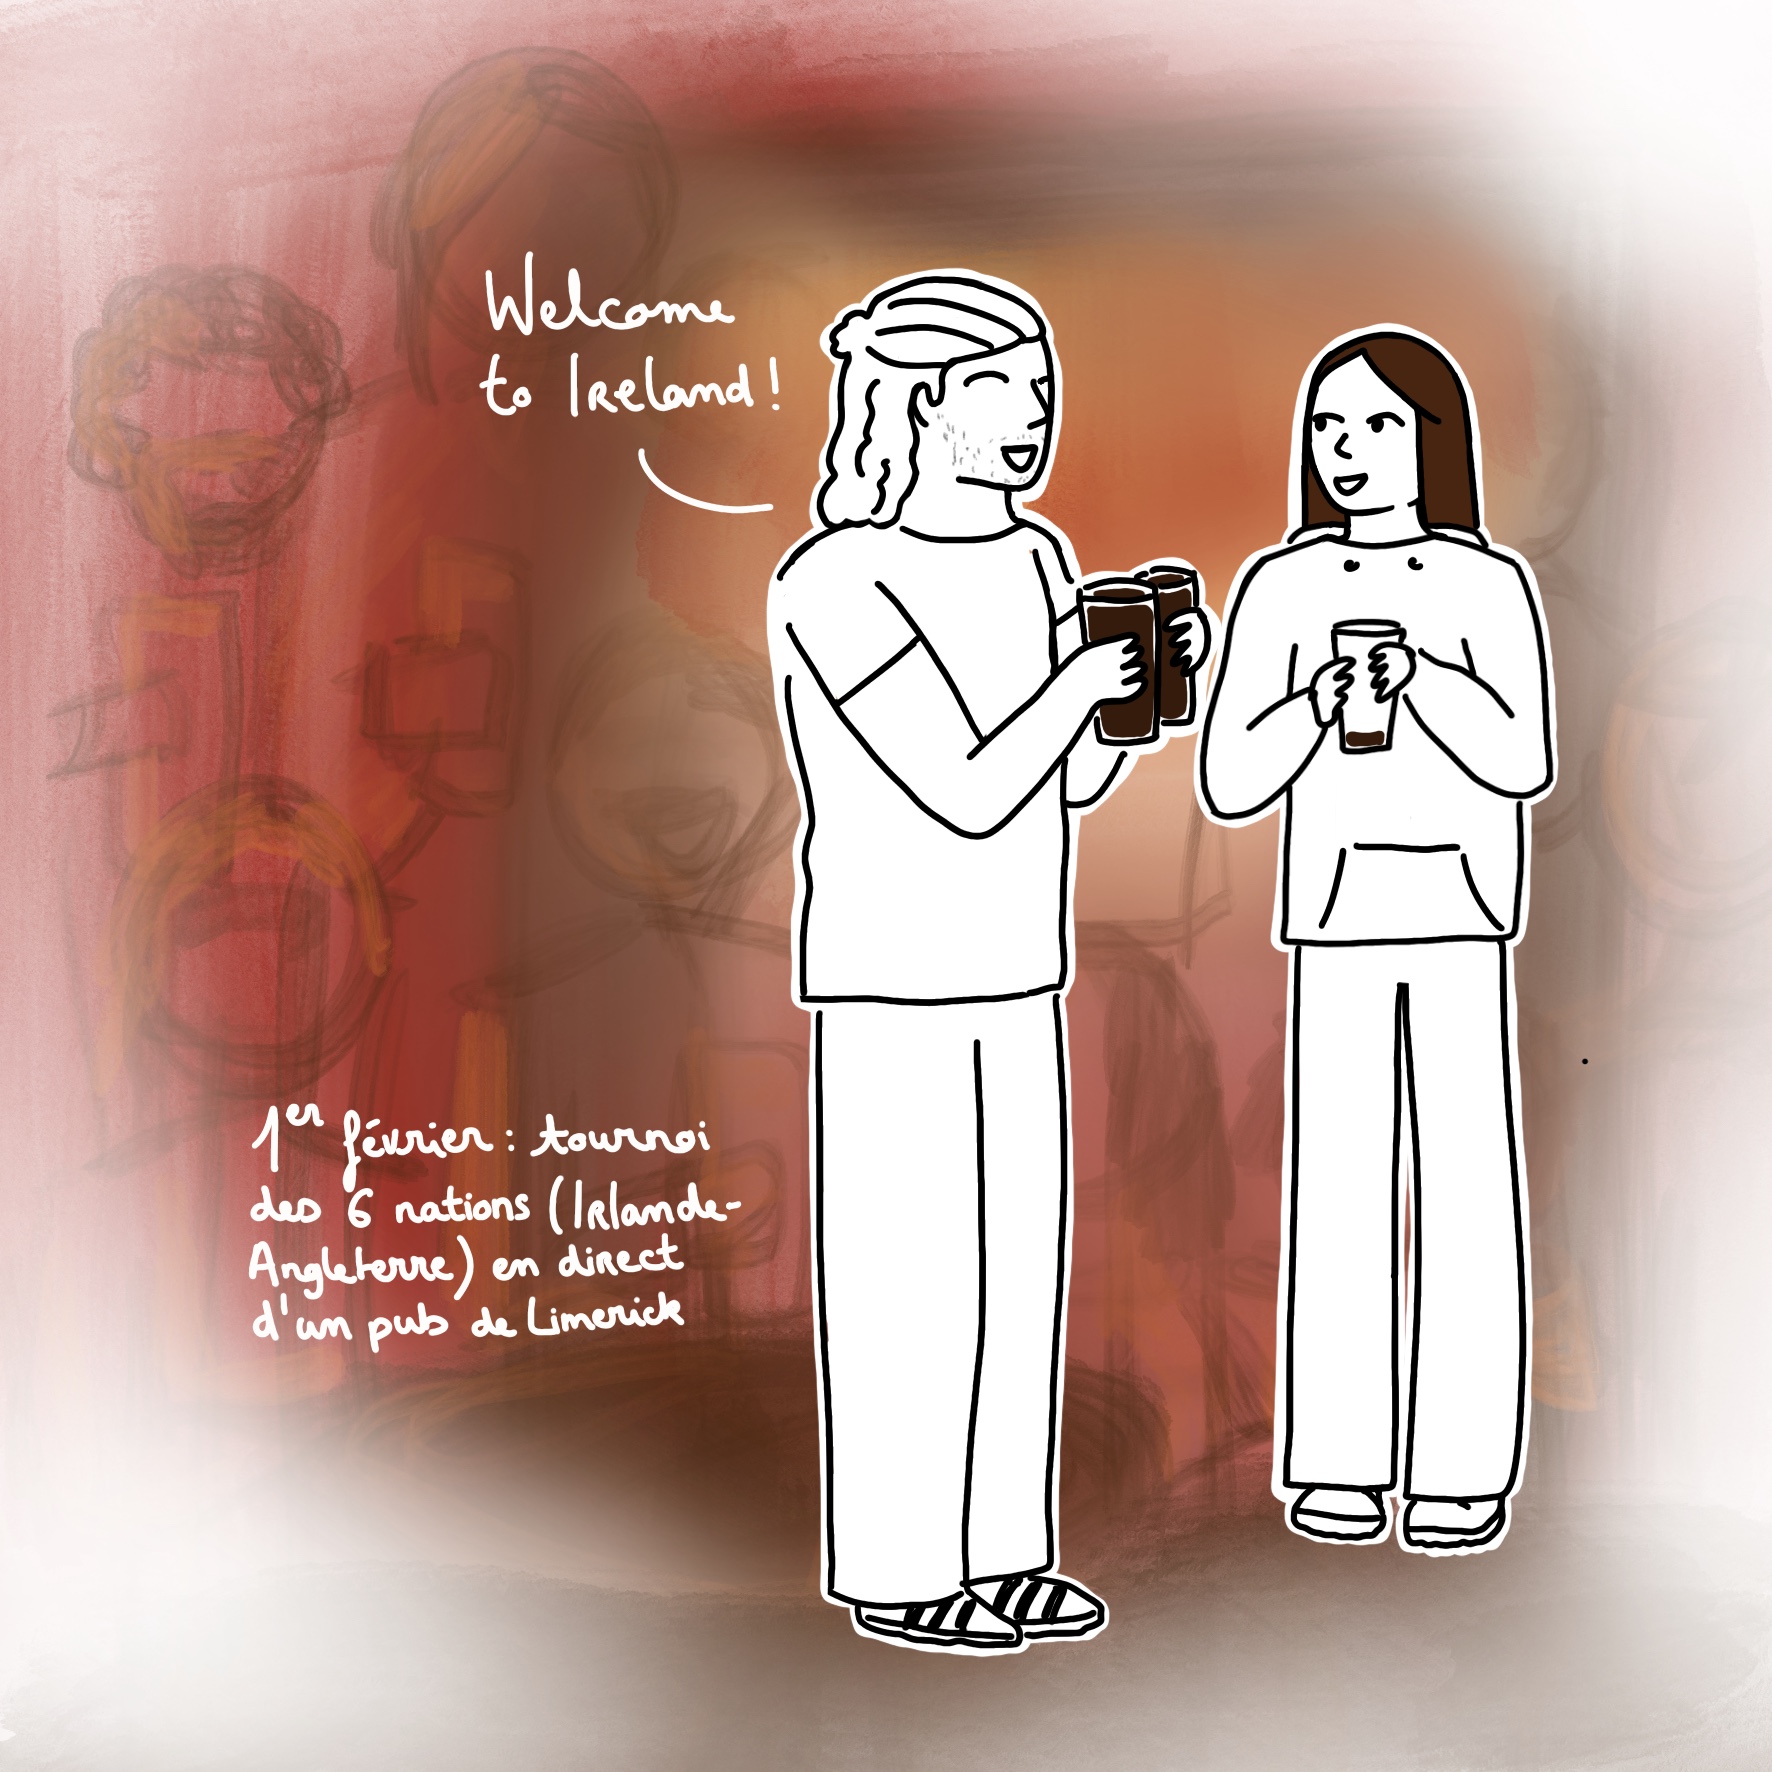 Welcome
to Ireland!
1er février : tournoi
des 6 nations (Irlande-
Angleterre) en direct
d'un pub de Limerick